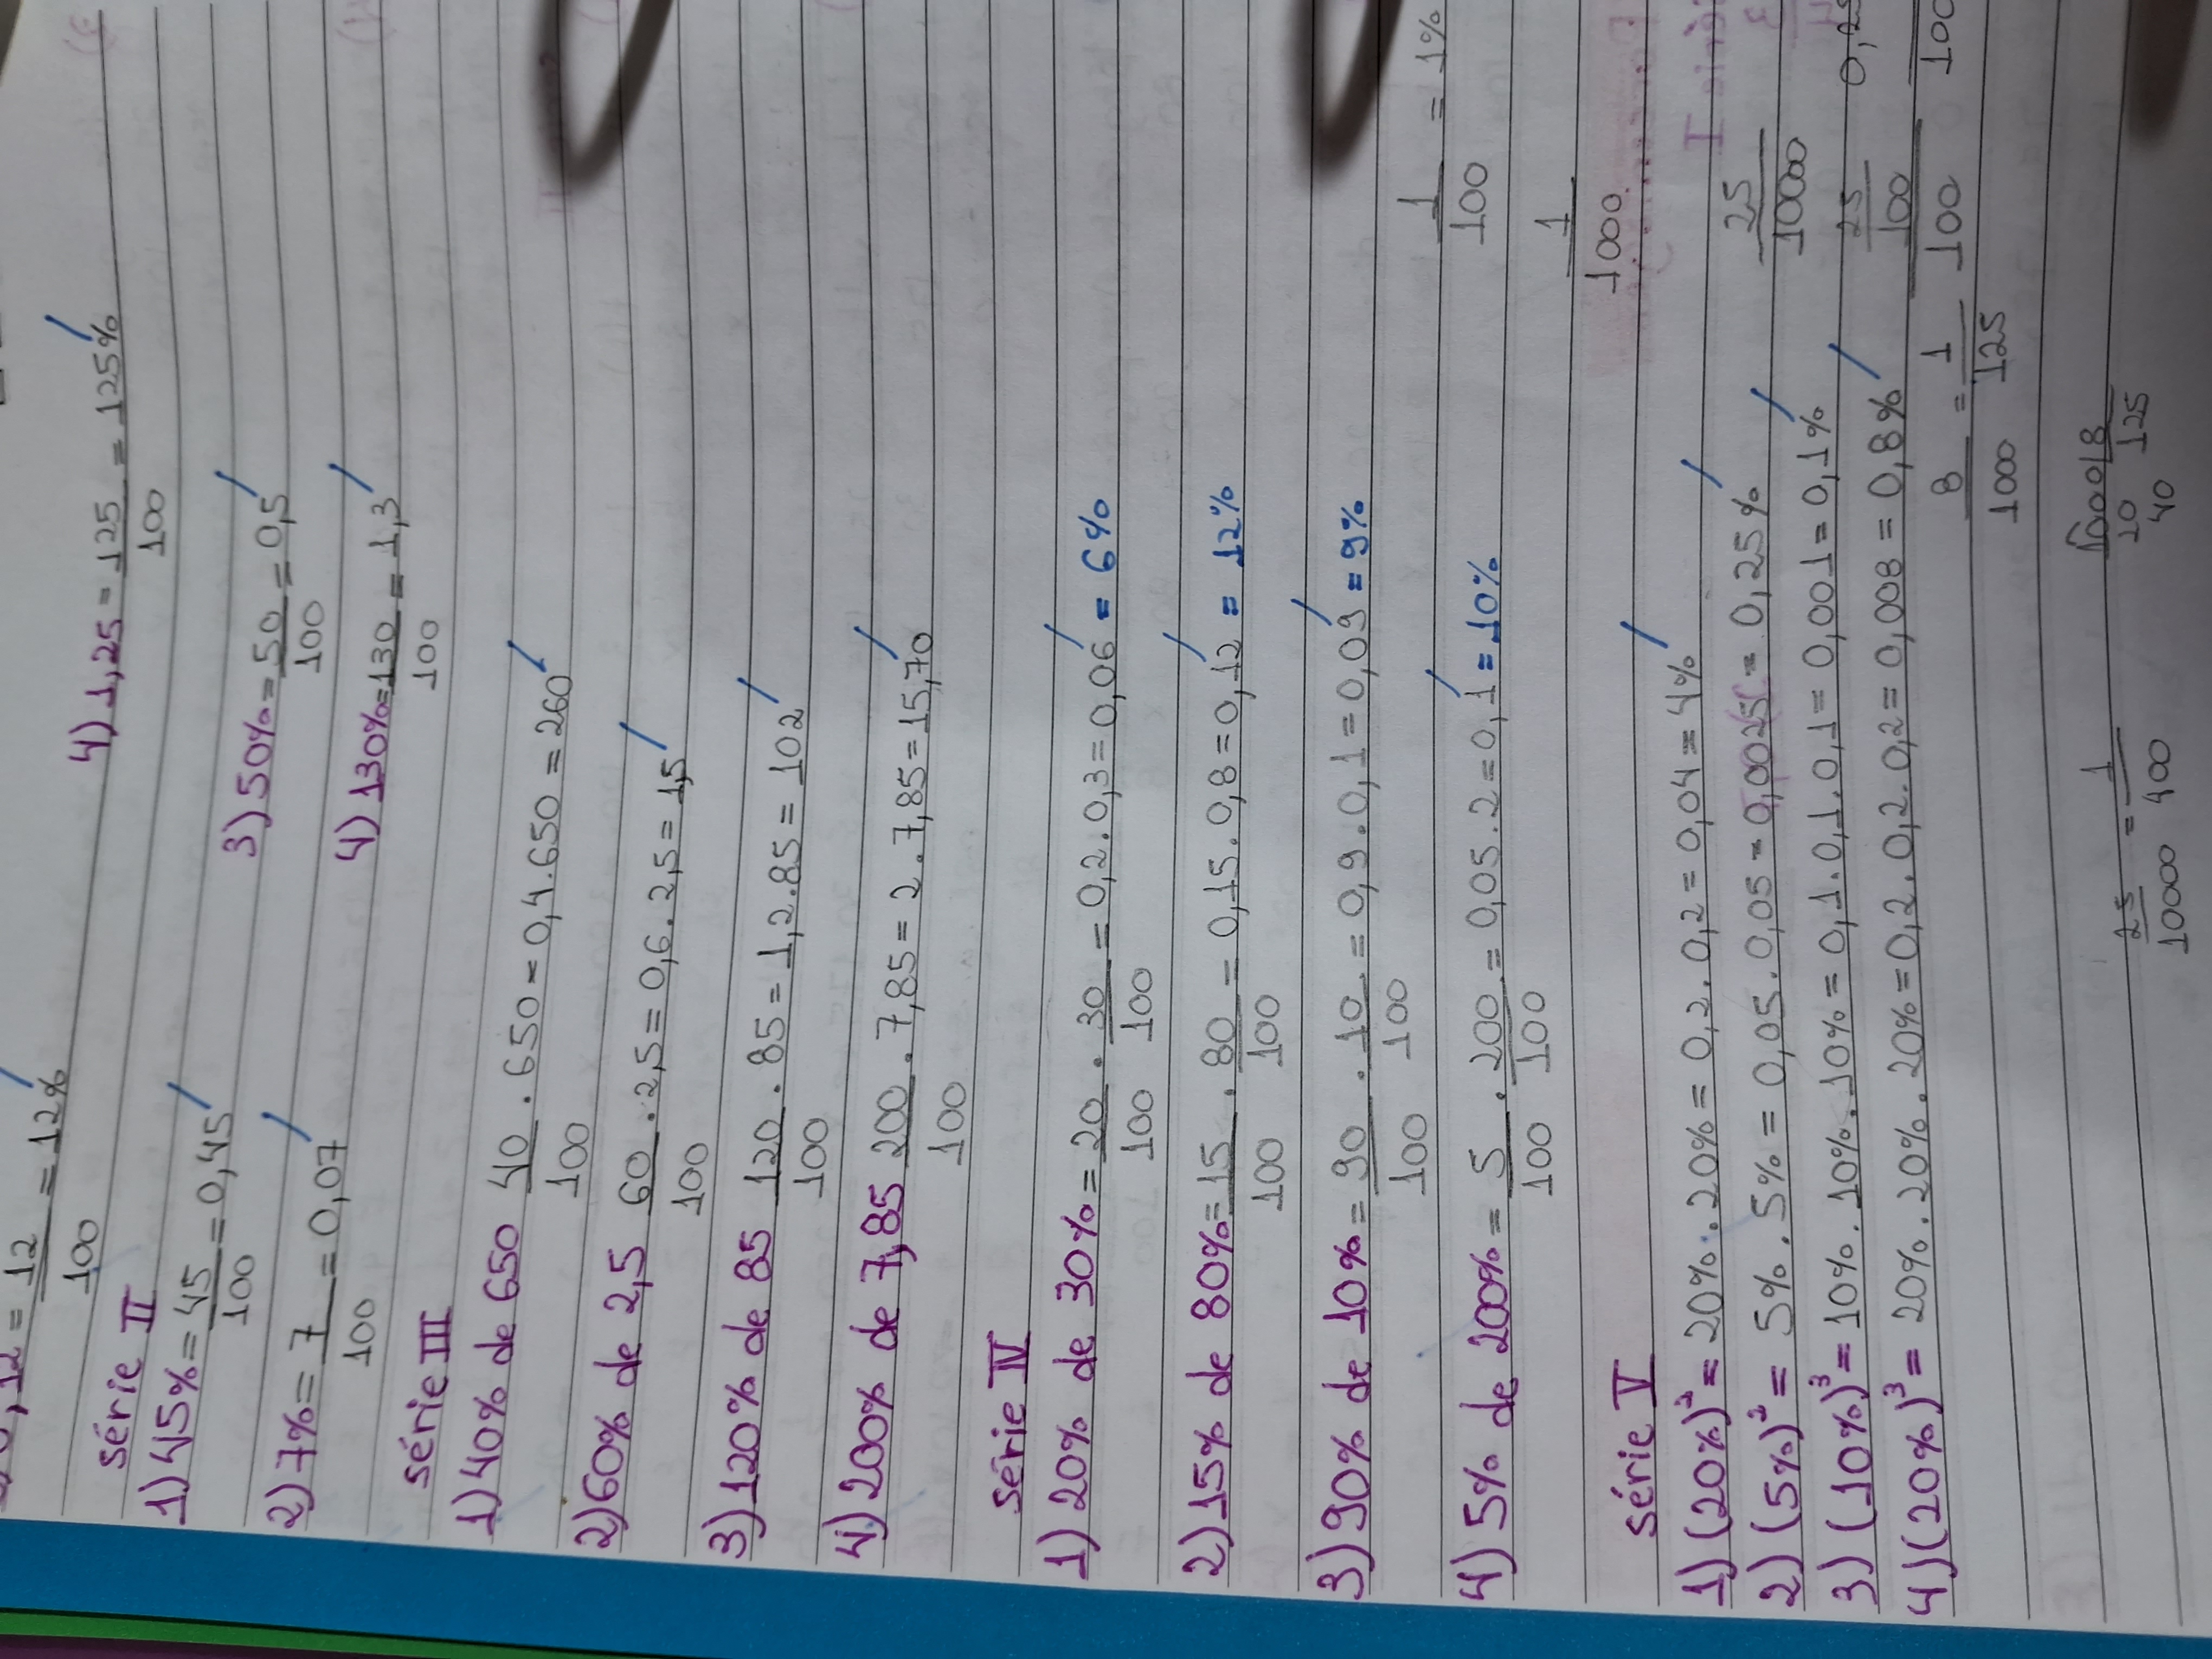 0,12 = 12/100 = 12%
4) 1,25 = 125/100 = 125%
série II
1) 45% = 45/100 = 0,45
3) 50% = 50/100 = 0,5
2) 7% = 7/100 = 0,07
4) 130% = 130/100 = 1,3
série III
1) 40% de 650 40/100 . 650 = 0,4 . 650 = 260
2) 60% de 2,5 60/100 . 2,5 = 0,6 . 2,5 = 1,5
3) 120% de 85 120/100 . 85 = 1,2 . 85 = 102
4) 200% de 7,85 200/100 . 7,85 = 2 . 7,85 = 15,70
série IV
1) 20% de 30% = 20/100 . 30/100 = 0,2 . 0,3 = 0,06 = 6%
2) 15% de 80% = 15/100 . 80/100 = 0,15 . 0,8 = 0,12 = 12%
3) 90% de 10% = 90/100 . 10/100 = 0,9 . 0,1 = 0,09 = 9%
1/100 = 1%
4) 5% de 200% = 5/100 . 200/100 = 0,05 . 2 = 0,1 = 10%
1/1000
série V
1) (20%)² = 20% . 20% = 0,2 . 0,2 = 0,04 = 4%
2) (5%)² = 5% . 5% = 0,05 . 0,05 = 0,0025 = 0,25%
25/10000
3) (10%)³ = 10% . 10% . 10% = 0,1 . 0,1 . 0,1 = 0,001 = 0,1%
4) (20%)³ = 20% . 20% . 20% = 0,2 . 0,2 . 0,2 = 0,008 = 0,8%
25/100/100
8/1000 = 1/125
25/10000 = 1/400
1000 8
20 125
40